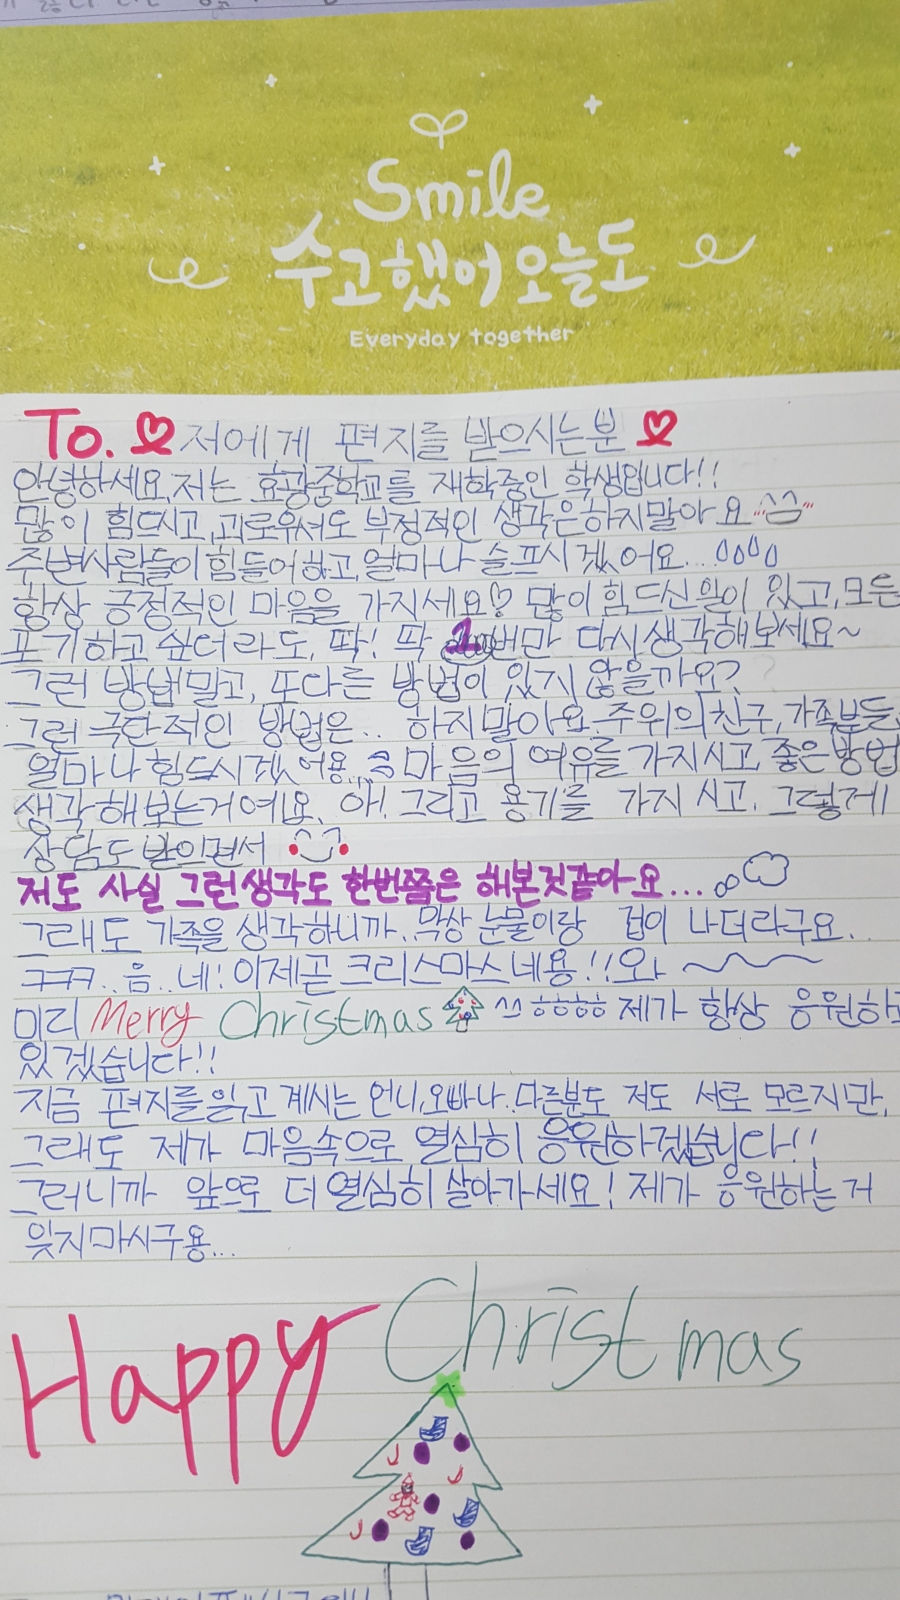 Smile
수고했어 오늘도
Everyday together
To. 저에게 편지를 받으시는분
안녕하세요, 저는 효광중학교를 재학중인 학생입니다!!
많이 힘드시고, 괴로우셔도 부정적인 생각은하지말아요^^
주변사람들이 힘들어하고, 얼마나 슬프시겠어요...
항상 긍정적인 마음을 가지세요♡ 많이 힘드신일이 있고, 모든
포기하고 싶더라도, 딱! 딱 1번만 다시생각해보세요~
그런 방법말고, 또다른 방법이 있지 않을까요?
그런 극단적인 방법은.. 하지말아요. 주위의친구,가족분들,
얼마나힘드시겠어용.. 마음의 여유를 가지시고, 좋은방법
생각해보는거예요. 아! 그리고 용기를 가지시고, 그렇게
상담도 받으면서
저도 사실 그런생각도 한번쯤은 해본것같아요...
그래도 가족을 생각하니까.. 막상 눈물이랑 겁이 나더라구요..
ㅋㅋㅋ..음..네! 이제곧 크리스마스네용!! 와~~~
미리 Merry Christmas ^^ ㅎㅎㅎㅎ 제가 항상 응원하고
있겠습니다!!
지금 편지를읽고 계시는 언니,오빠나..다른분도 저도 서로 모르지만,
그래도 제가 마음속으로 열심히 응원하겠습니다!!
그러니까 앞으로 더 열심히 살아가세요! 제가 응원하는거
잊지마시구용...
Happy Christmas